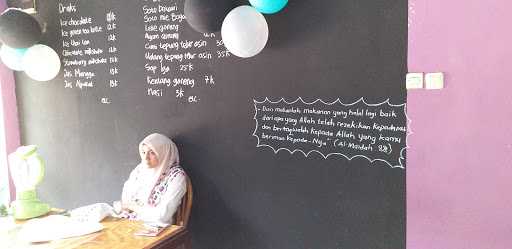 Drinks
Ice chocolate
Ice green tea latte 12k
Ice thai tea 12k
Chocolate milkshake 15k
Strawberry milkshake 15k
Jus Mangga
Jus Alpukat
etc.
Soto
Soto mie Bogor
Lele goreng
Ayam goreng
Cumi tepung telur asin
Udang tepung telur asin 35k
Sop Iga 25k
Kentang goreng 7k
Nasi 5k
etc.
"Dan makanlah makanan yang halal lagi baik
dari apa yang Allah telah rezekikan kepadamu
dan bertaqwalah kepada Allah yang kamu
beriman kepada-Nya" (Al-Maidah: 88)